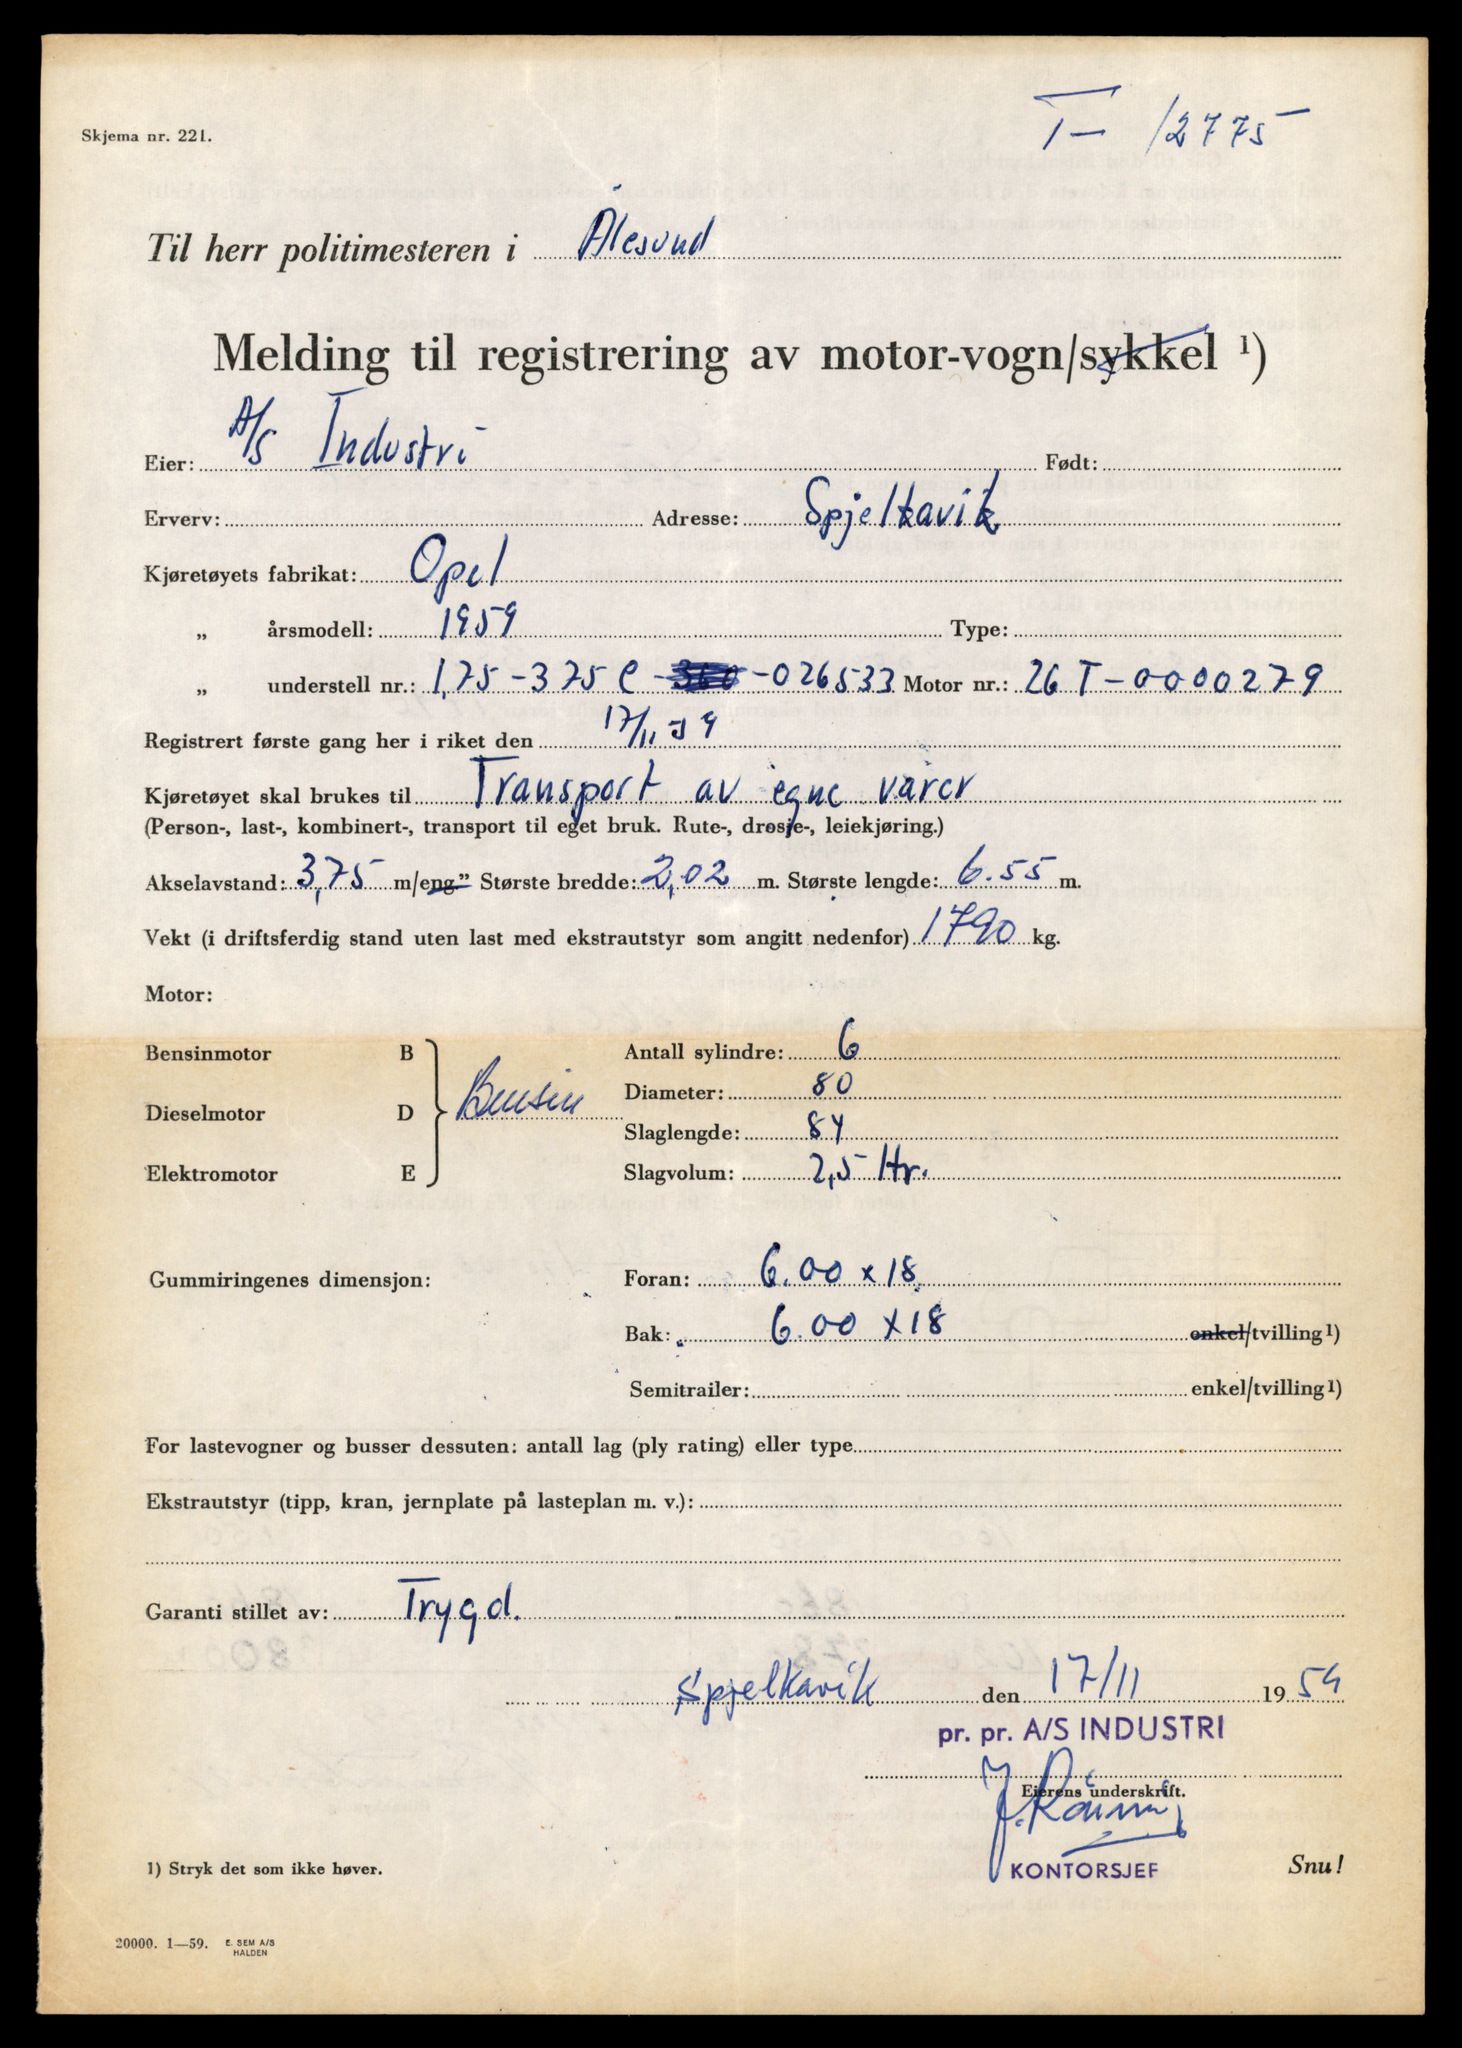 T- 12775
Skjema nr. 221.
Til herr politimesteren i Ålesund
Melding til registrering av motor-vogn/sykkel 1)
Eier: A/S Industri Født:
Erverv: Adresse: Spjelkavik
Kjøretøyets fabrikat: Opel
„ årsmodell: 1959 Type:
„ understell nr.: 1,75-375 e - -026533 Motor nr.: 26 T-0000279
Registrert første gang her i riket den 17/11 59
Kjøretøyet skal brukes til Transport av egne varer
(Person-, last-, kombinert-, transport til eget bruk. Rute-, drosje-, leiekjøring.)
Akselavstand: 3,75 m/eng.” Største bredde: 2,02 m. Største lengde: 6.55 m.
Vekt (i driftsferdig stand uten last med ekstrautstyr som angitt nedenfor) 1790 kg.
Motor:
Bensinmotor B Antall sylindre: 6
Bensin Diameter: 80
Dieselmotor D Slaglengde: 84
Elektromotor E Slagvolum: 2,5 ltr.
Gummiringenes dimensjon: Foran: 6.00 x 18
Bak: 6.00 x 18 enkel/tvilling 1)
Semitrailer: enkel/tvilling 1)
For lastevogner og busser dessuten: antall lag (ply rating) eller type
Ekstrautstyr (tipp, kran, jernplate på lasteplan m. v.):
Garanti stillet av: Trygd.
Spjelkavik den 17/11 1959
pr. pr. A/S INDUSTRI
Eierens underskrift.
KONTORSJEF
1) Stryk det som ikke høver. Snu!
20000. 1—59. E. SEM A/S
HALDEN